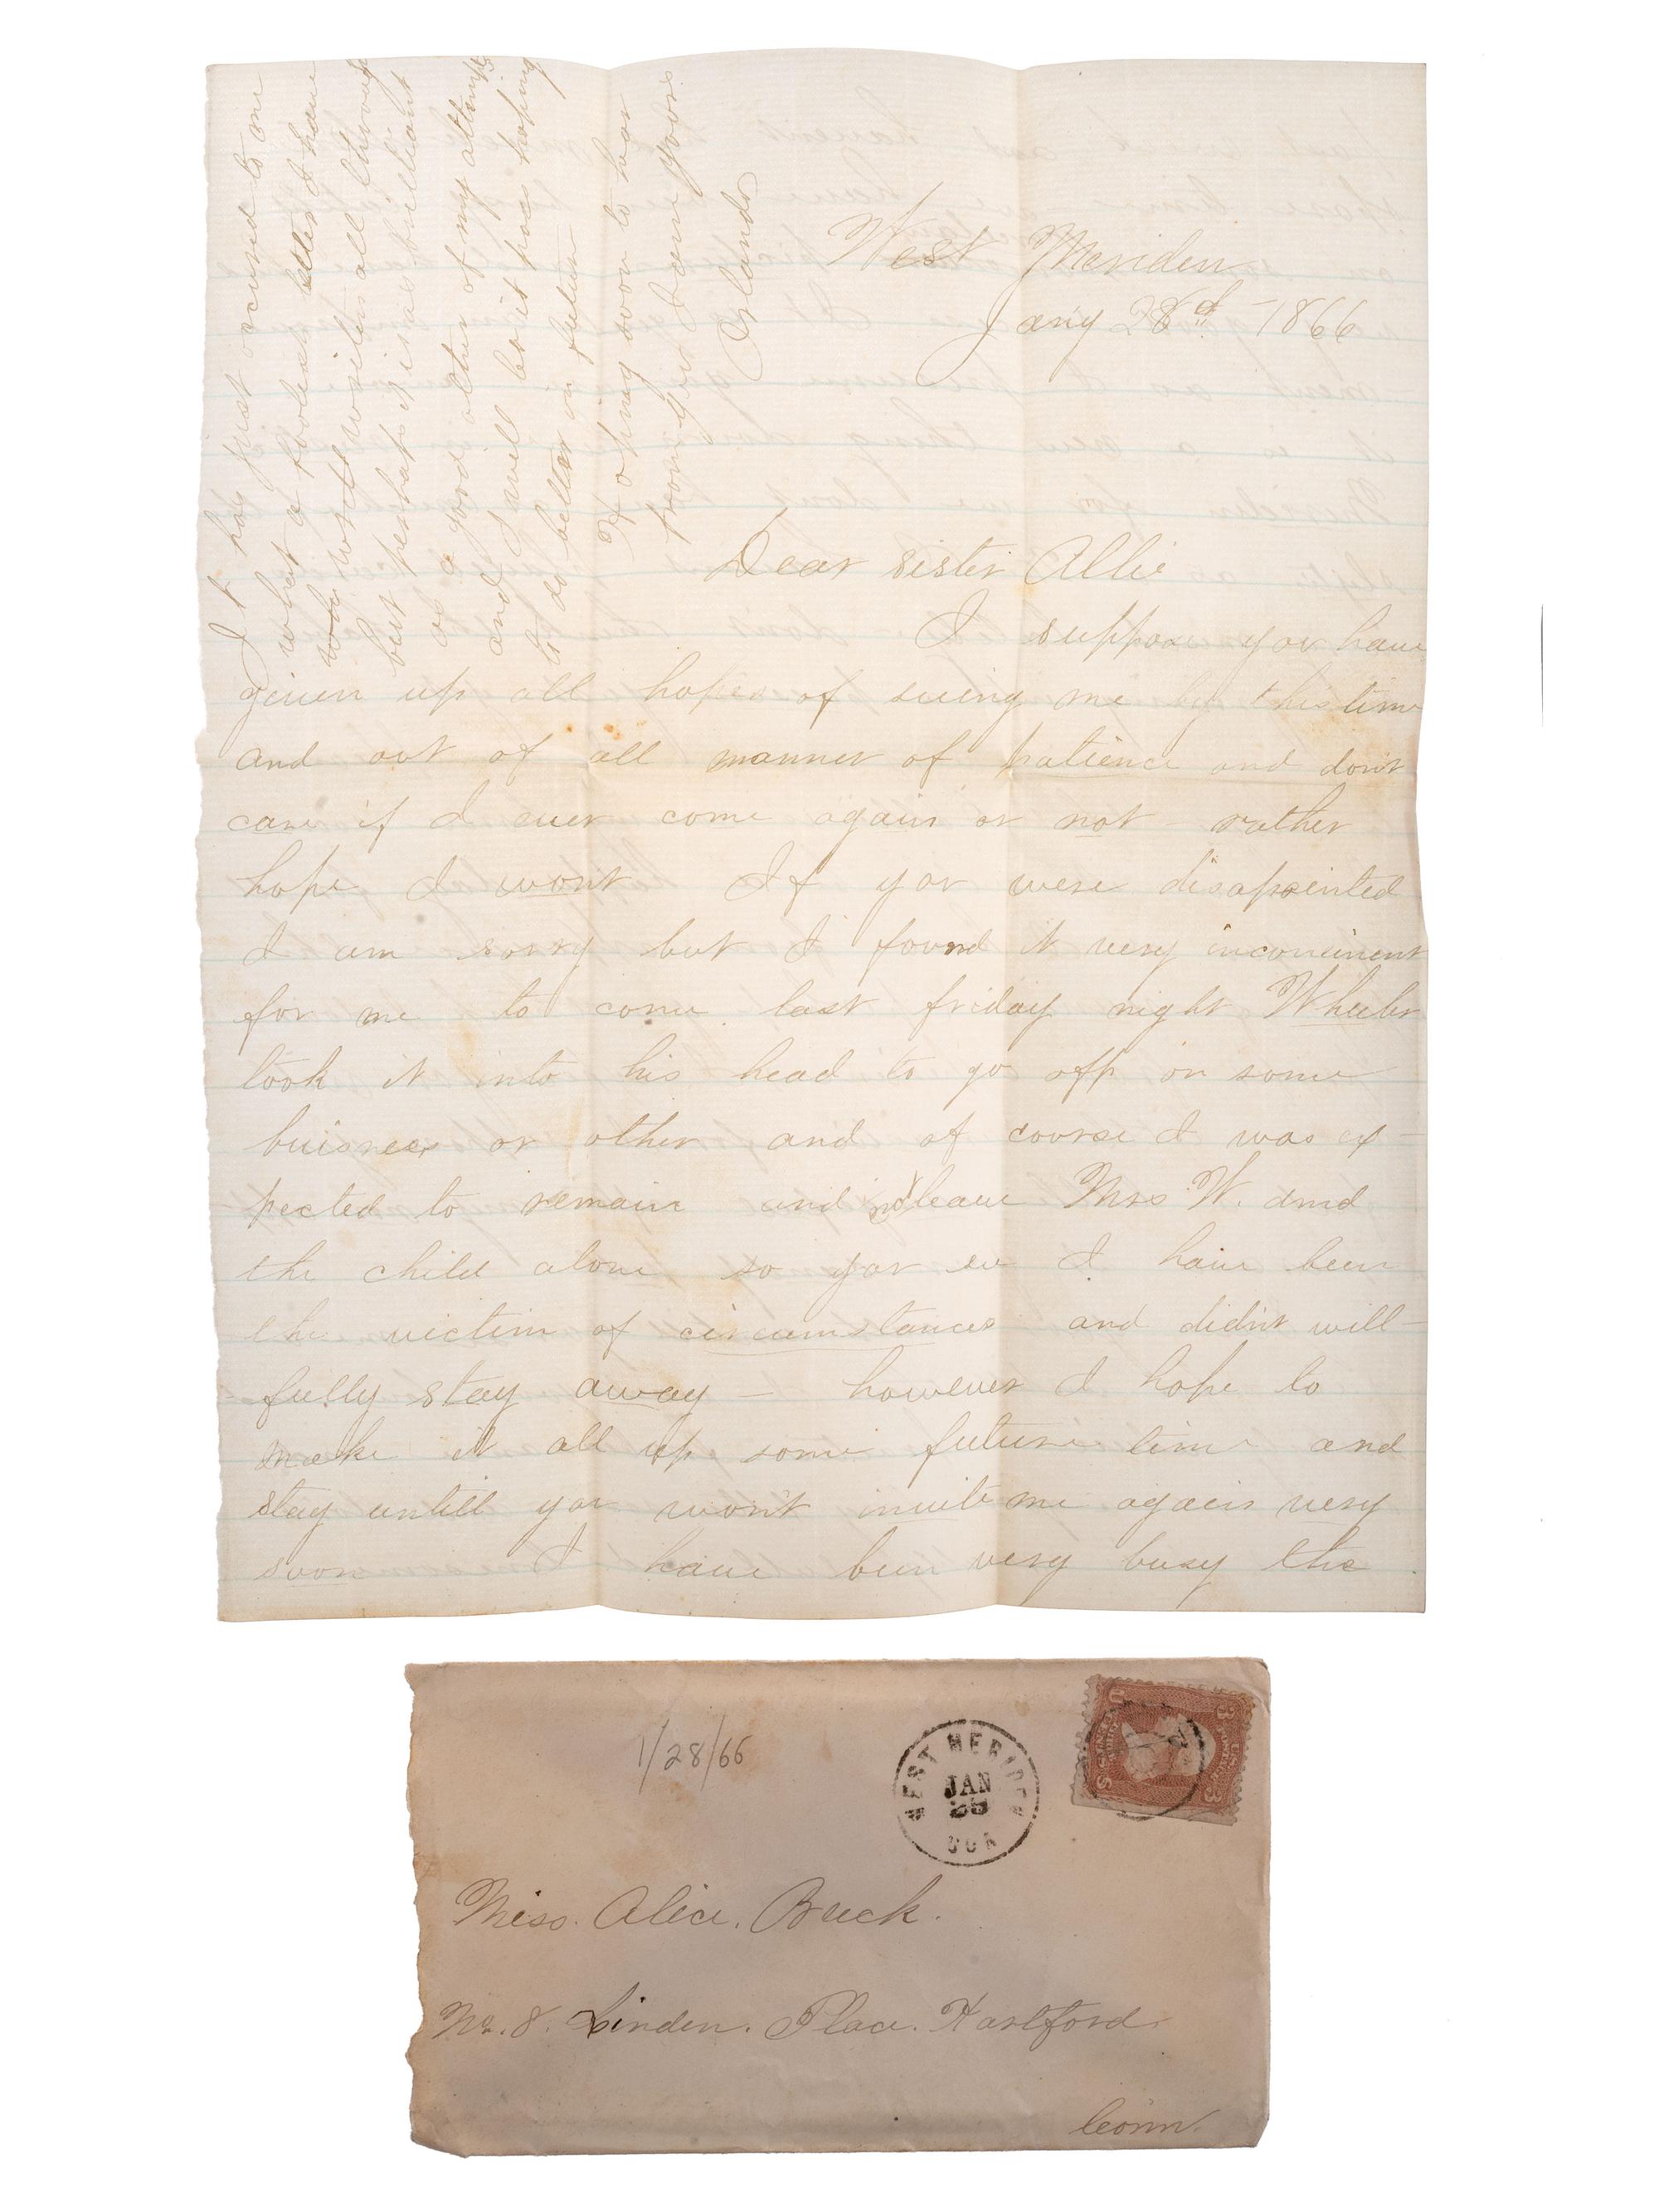 West Meriden
Jany 28d - 1866
Dear sister Allie
I suppose you have
given up all hopes of seeing me by this time
and out of all manner of patience and dont
care if I ever come again or not - rather
hope I wont If you were disapointed
I am sorry but I found it very inconvinent
for me to come last friday night Wheeler
took it into his head to go off on some
buisness or other and of course I was ex-
pected to remain and not leave Mrs W. and
the child alone so you see I have been
the victim of circumstances and didnt will-
fully stay away - however I hope to
make it all up some future time and
stay untill you wont invite me again very
soon I have been very busy the
It has just occured to me
what a foolish letter I have
wrote all through
but perhaps it is as brilliant
as a good other of my attempts
and I will let it pass hoping
to do better in future
Hoping soon to hear
from you I am yours
Orlando
1/28/66
WEST MERIDEN
JAN
28
CON
U.S.
3 3
Miss. Alice. Buck.
No. 8. Linden. Place. Hartford.
Conn.